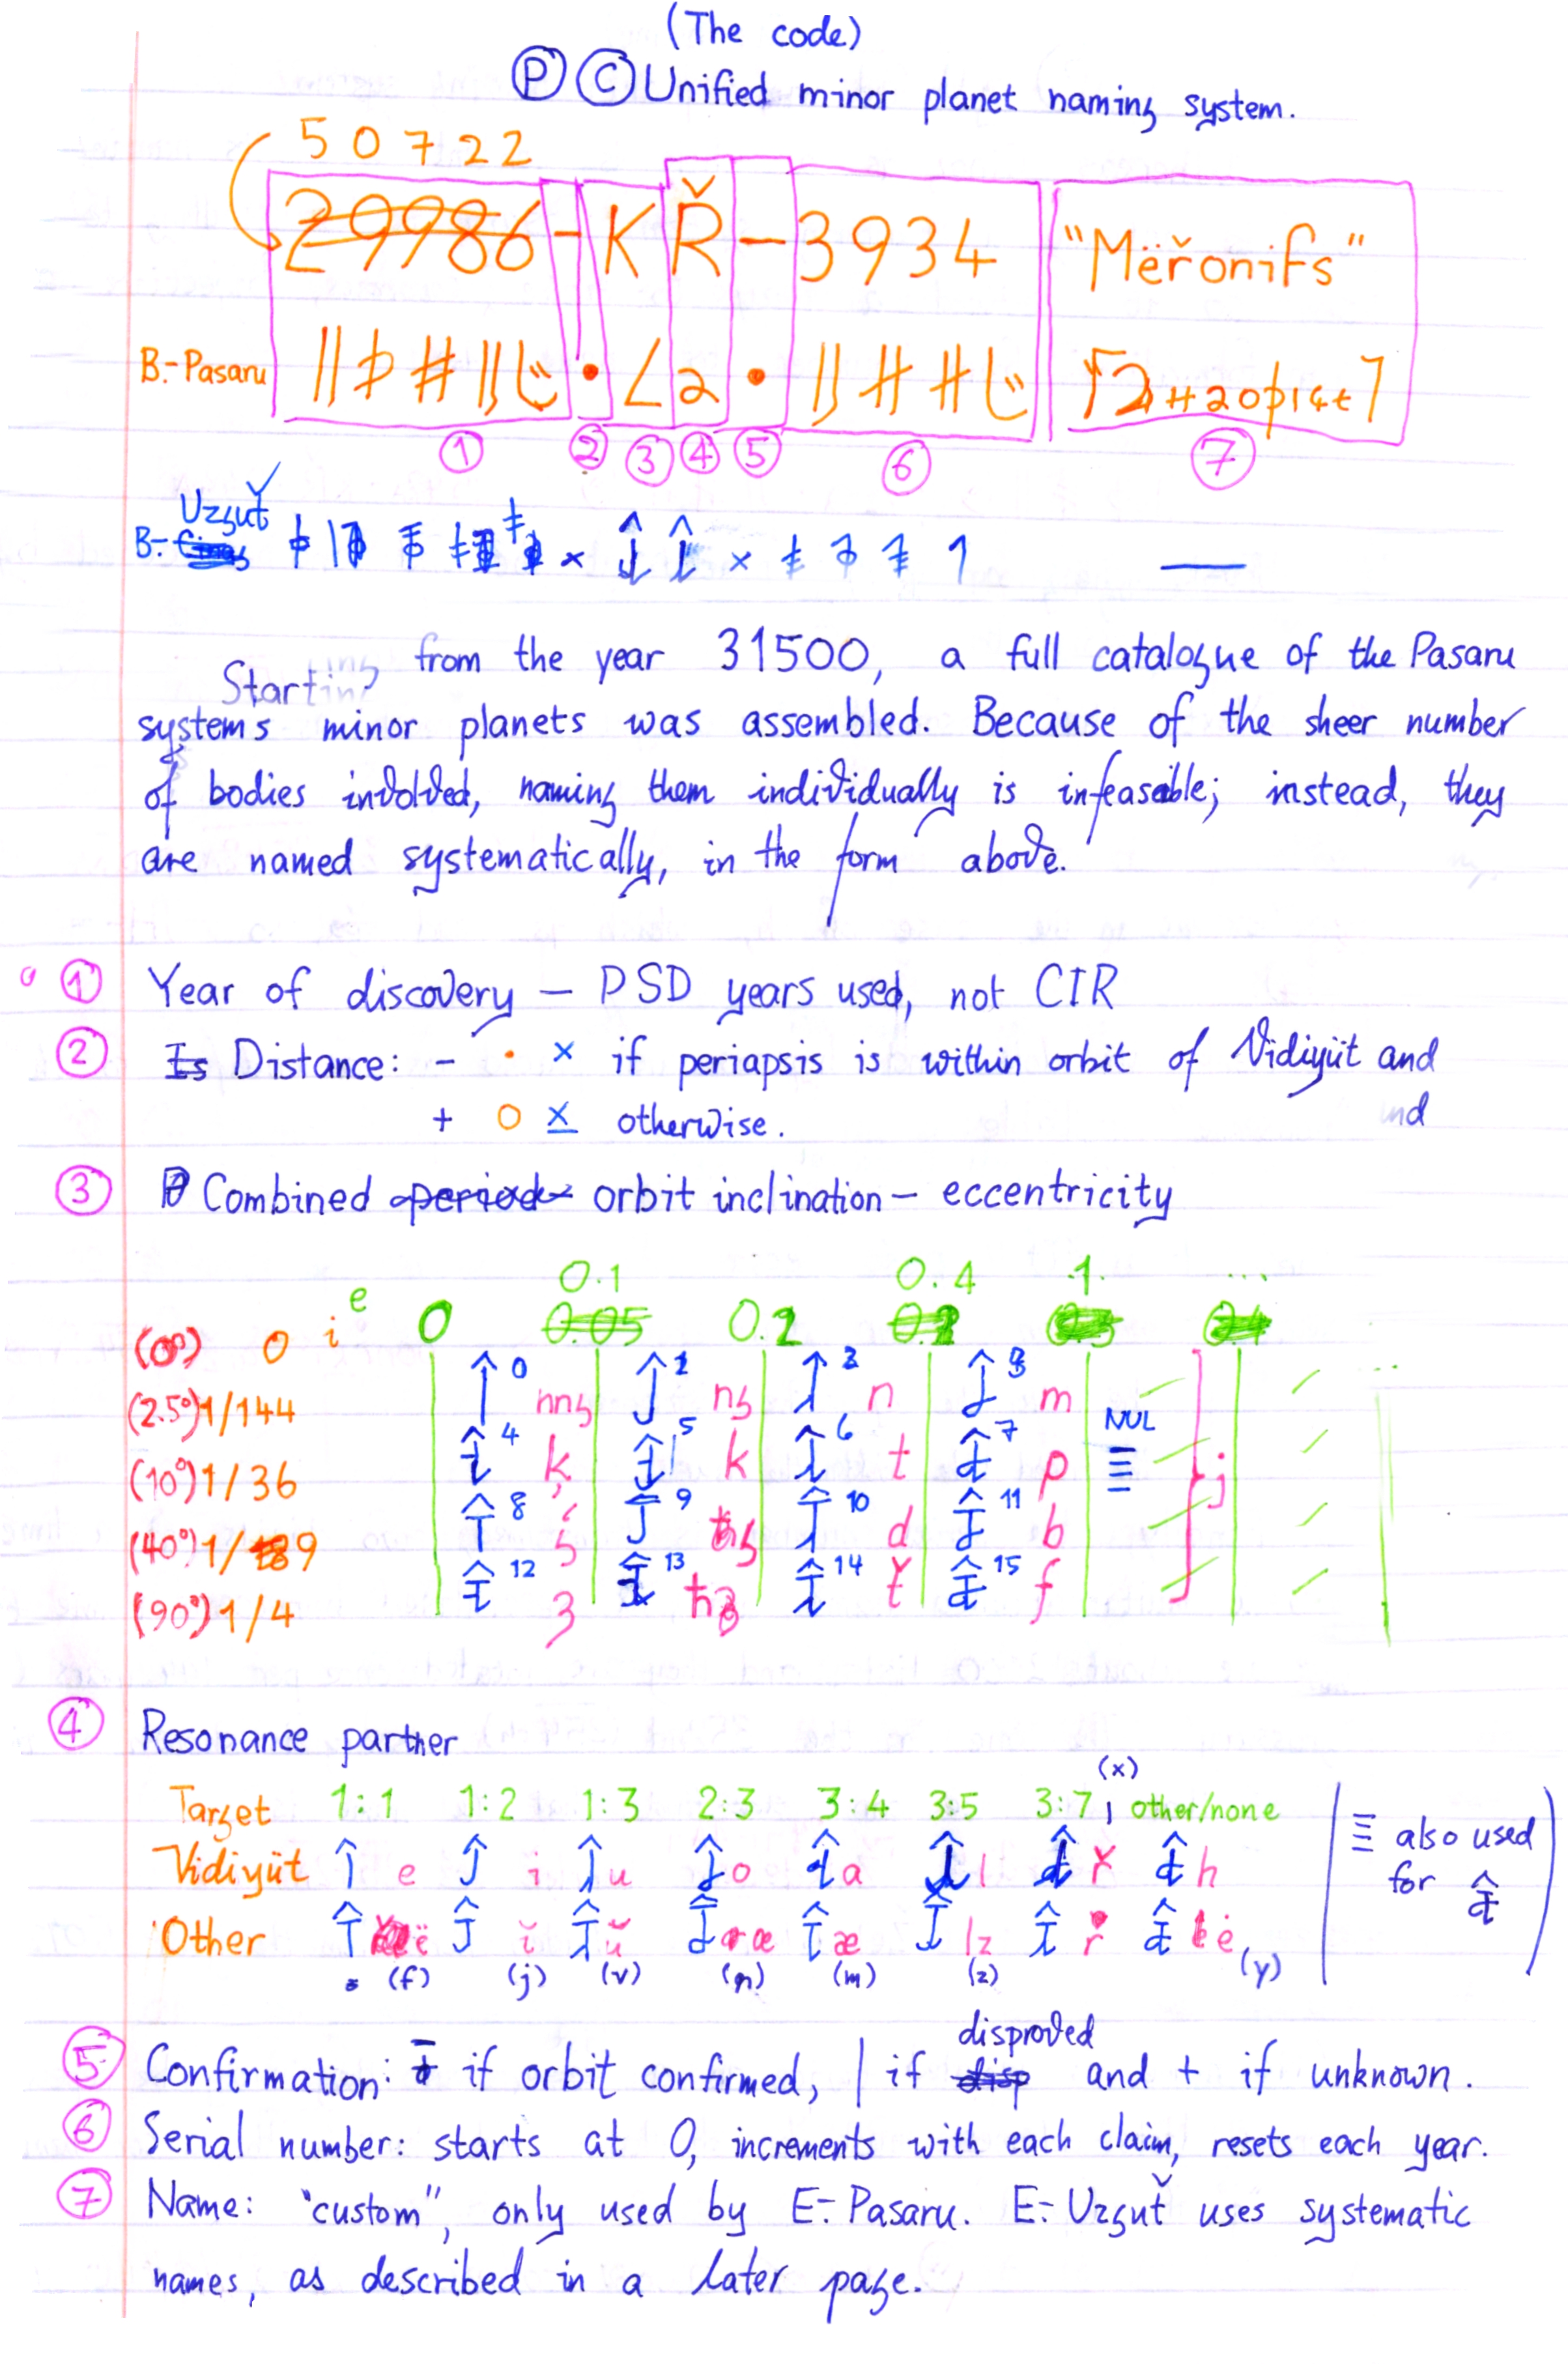 (The code)
Ⓟ Ⓒ Unified minor planet naming system.
5 0 7 2 2
29986 - K Ř - 3934 "Mëřonifs"
B.-Pasaru
① ② ③ ④ ⑤ ⑥ ⑦
Uzgut̆
B.-
Starting from the year 31500, a full catalogue of the Pasaru
systems minor planets was assembled. Because of the sheer number
of bodies involved, naming them individually is infeasible; instead, they
are named systematically, in the form above.
① Year of discovery – PSD years used, not CIR
② Is Distance: - · × if periapsis is within orbit of Vidiyüt and
+ o x otherwise. nd
③ Combined period orbit inclination – eccentricity
0.1 0.4 1. ...
e 0 0.05 0.2
i
(0°) 0
(2.5°) 1/144
(10°) 1/36
(40°) 1/9
(90°) 1/4
0 1 2 3
n m
4 5 6 7
k t p
8 9 10 11
d b
12 13 14 15
f
NUL
≡ j
④ Resonance partner
(x)
Target 1:1 1:2 1:3 2:3 3:4 3:5 3:7 , other/none
Vidiyüt e i u o a l h
Other ë ĭ ŭ œ æ lz ė
(f) (j) (v) (m) (z) (y)
≡ also used
for
⑤ Confirmation: if orbit confirmed, | if disproved and + if unknown.
⑥ Serial number: starts at 0, increments with each claim, resets each year.
⑦ Name: "custom", only used by E:-Pasaru. E:-Uzgut̆ uses systematic
names, as described in a later page.